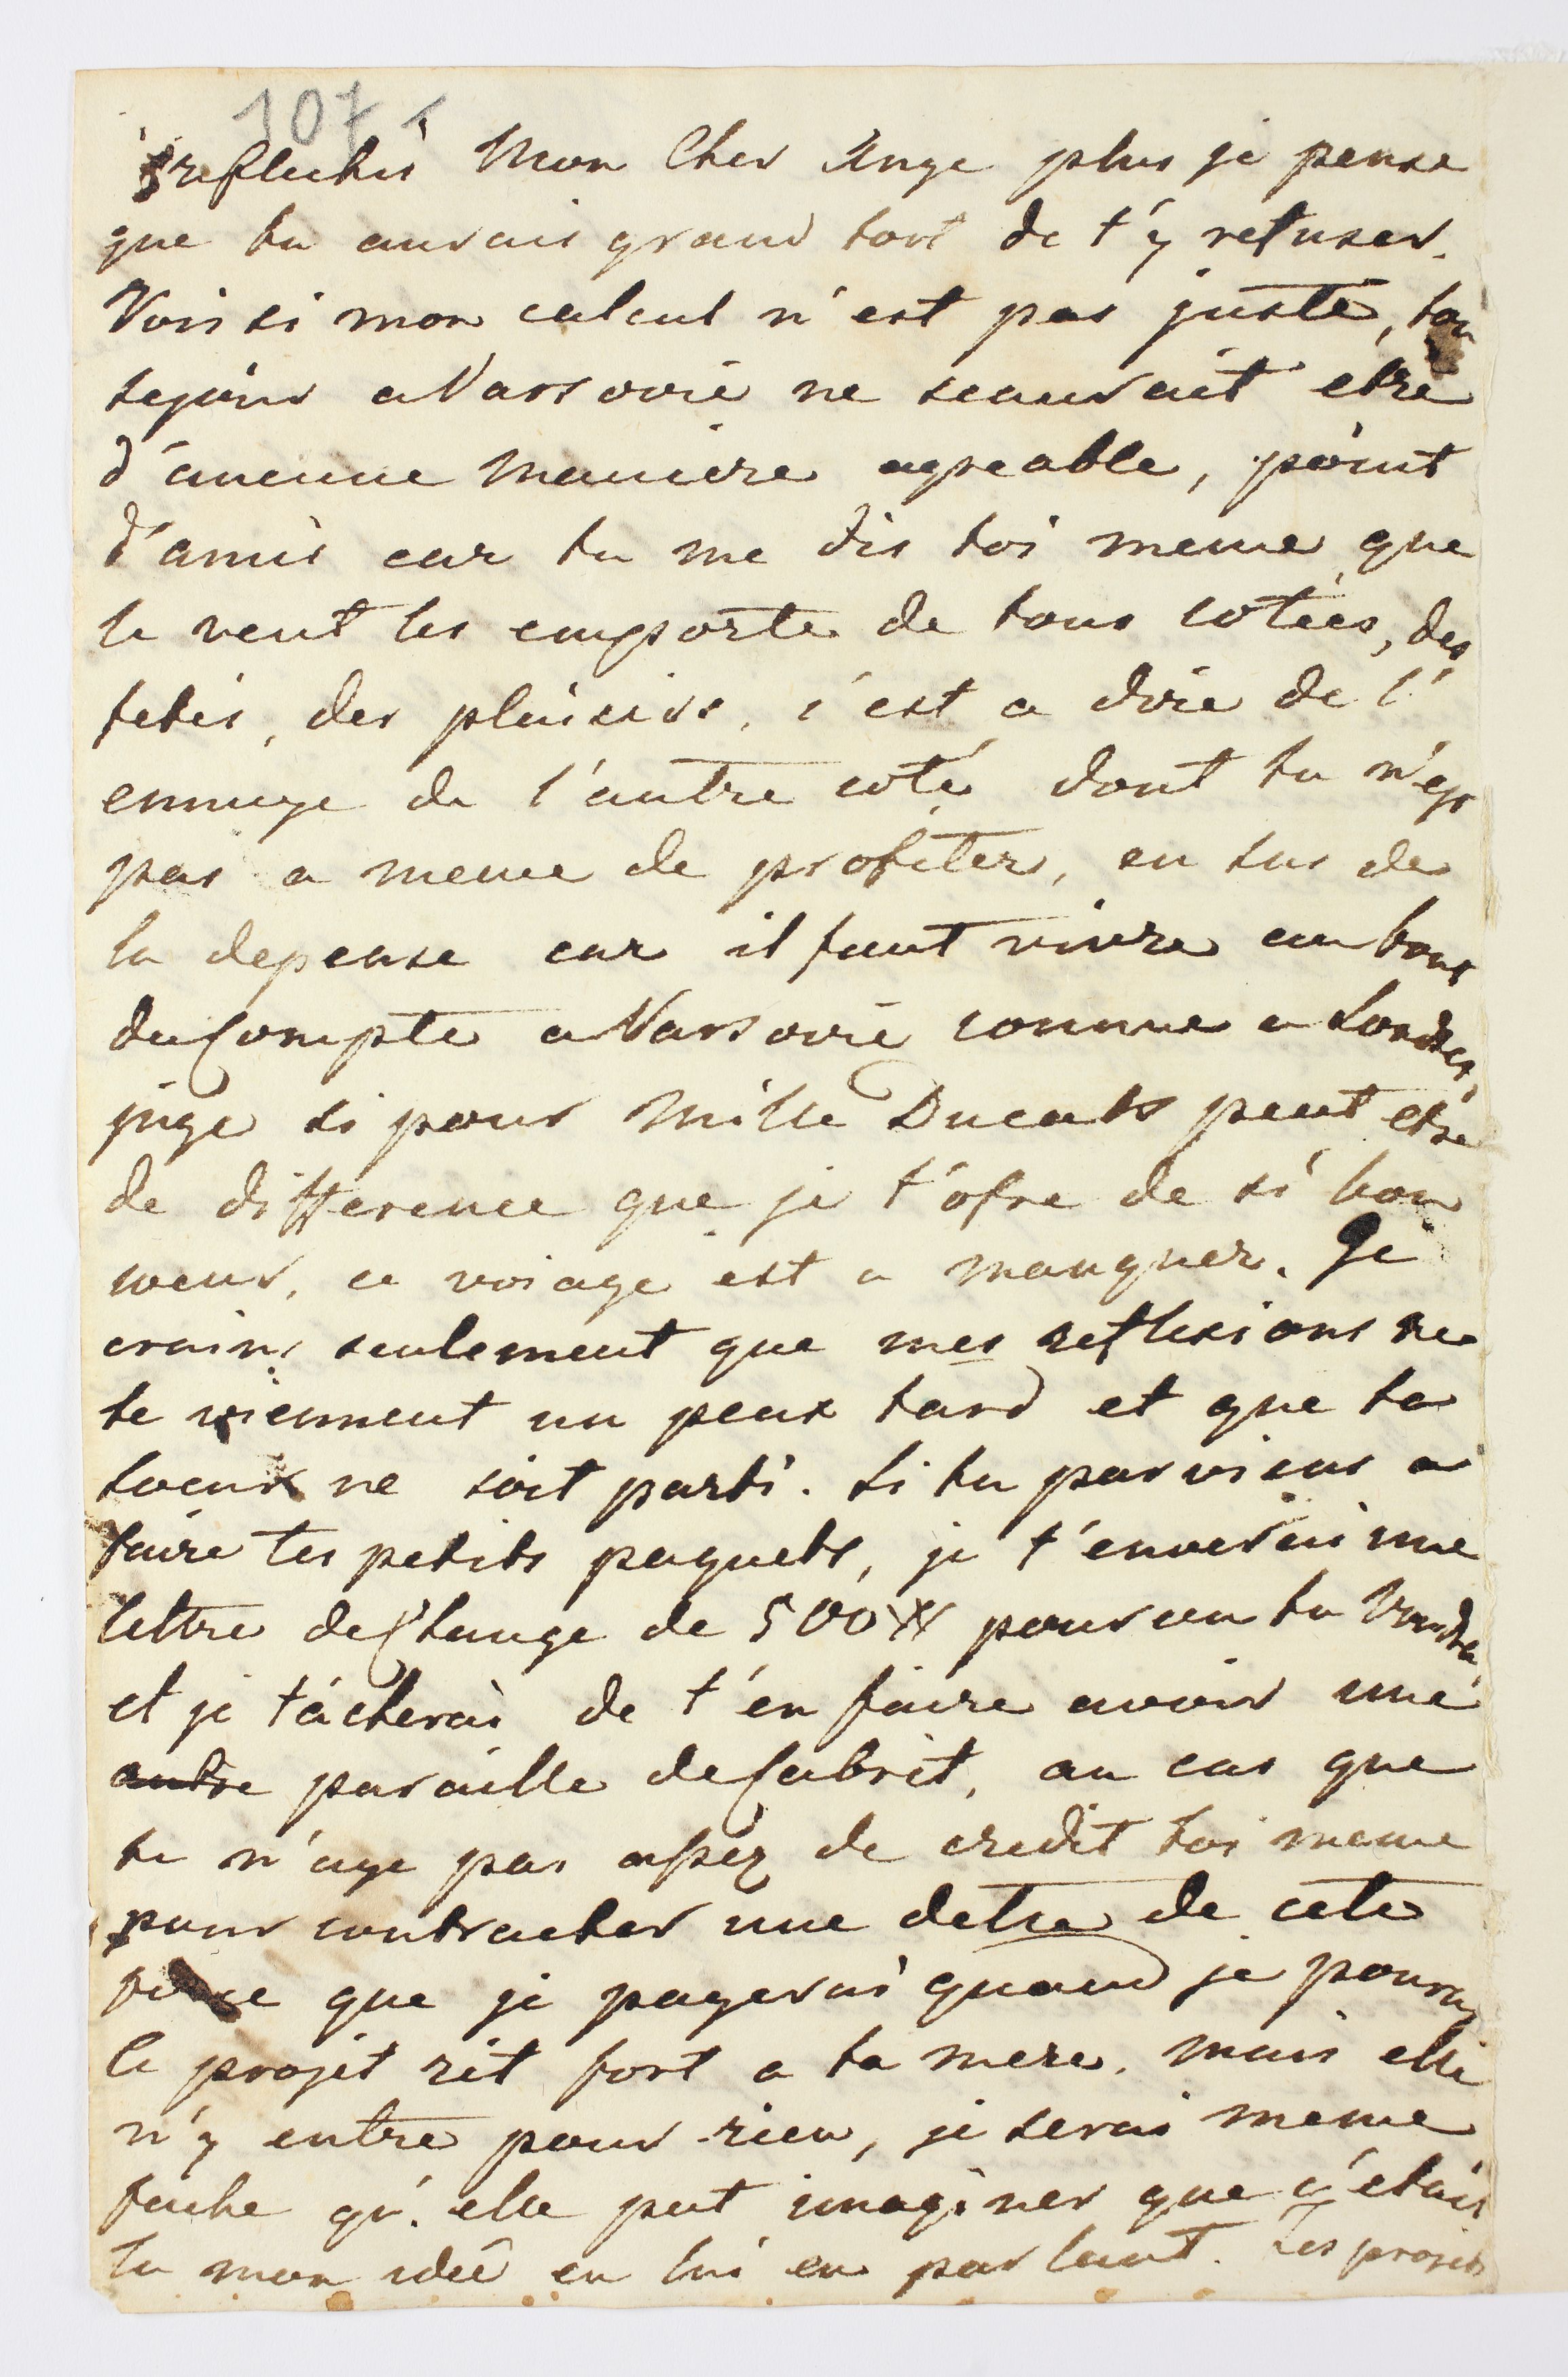 107
reflechis Mon Cher Ange plus je pense
que tu aurais grand tort de t'y refuser.
Vois si mon calcul n'est pas juste, ton
sejour a Varsovie ne scaurait etre
d'aucune maniere agreable, point
d'amis car tu me dis toi meme que
le vent les emporte de tous cotées, des
fetes, des plaisirs, c'est a dire de l'
ennuye de l'autre coté dont tu n'es
pas a meme de profiter, en sus de
la depense car il faut vivre au bout
du Compte a Varsovie comme a Londres,
juge si pour Mille Ducats peut etre
de difference que je t'ofre de si bon
coeur, ce voiage est a manquer. Je
crains seulement que mes reflexions ne
te viennent un peux tard et que ta
soeur ne soit parti. Si tu parviens a
faire tes petits paquets, je t'enverai une
lettre de Change de 500 # pour ou tu Voudra,
et je tácherai de t'en faire avoir une
autre paraille de Cabrit, au cas que
tu n'aye pas assez de credit toi meme
pour contracter une dette de cete
force que je payerai quand je pouray
le projet rit fort a ta mere. mais elle
n'y entre pour rien, je serai meme
fache qu'elle put imaginer que c'etais
la mon idée en lui en parlant. Les projets